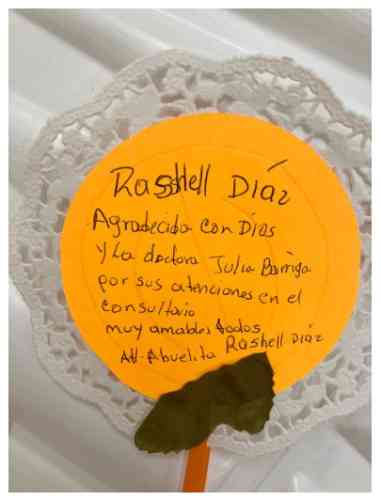 Rashell Díaz
Agradecida con Dios
y La doctora Julia Barriga
por sus atenciones en el
consultorio
muy amables todos
Att. Abuelita Rashell Díaz